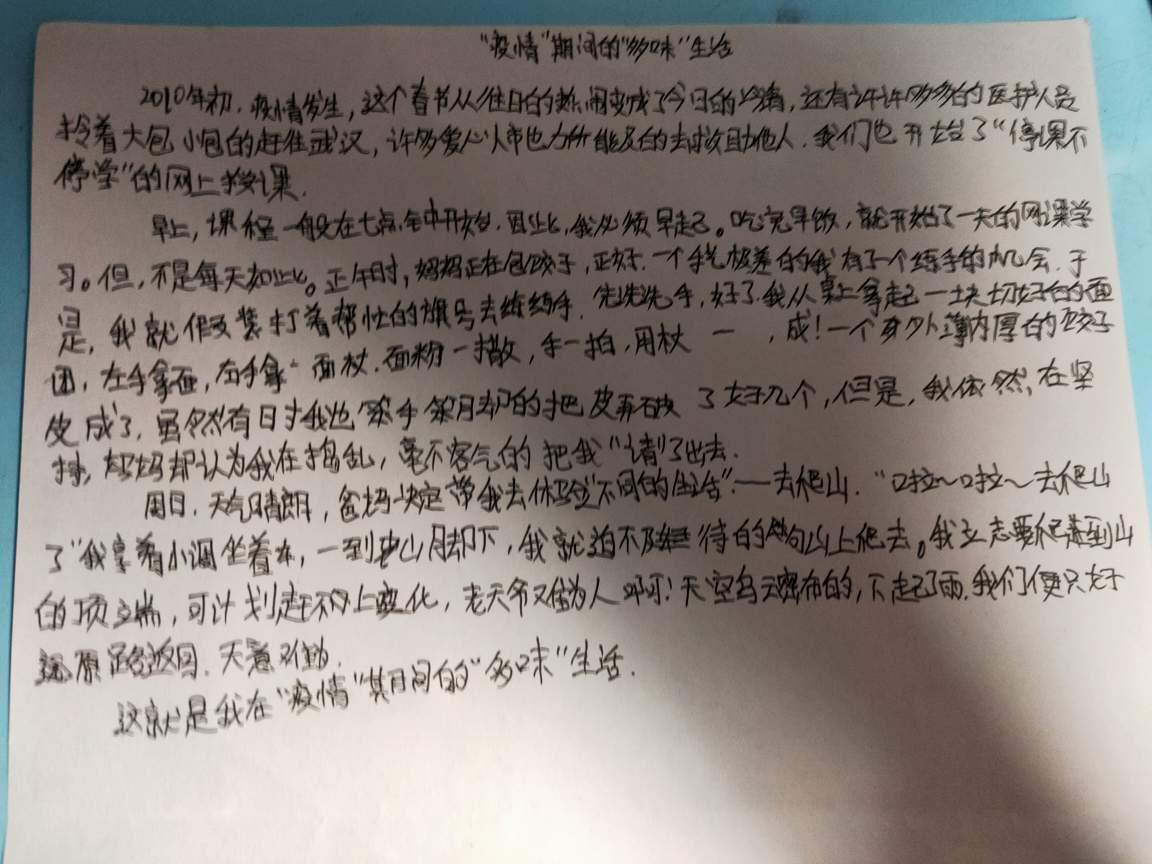 “疫情”期间的“多味”生活
2010年初，疫情发生，这个春节从往日的热闹变成了今日的冷清，还有许许多多的医护人员
拎着大包小包的赶往武汉，许多爱心人市也力所能及的去救助他人．我们也开始了“停课不
停学”的网上授课．
早上，课程一般在七点，因此，我必须早起。吃完早饭，就开始了一天的网课学
习。但，不是每天如此。正午时，妈妈正在包饺子，正好．一个手艺极差的我有了个练手的机会．于
是，我就假装打着帮忙的旗号去练练手．先洗洗手，好了，我从桌上拿起一块切好的面
团，左手拿面，右手拿面杖．面粉一撒，手一拍，用杖一，成！一个外薄内厚的饺子
皮成了．虽然有时我也笨手笨脚的把皮弄破了好几个，但是，我依然在坚
持，妈妈却认为我在捣乱，毫不客气的把我“请”了出去．
周日．天气晴朗，爸妈决定带我去体验“不同的生活”．——去爬山．“啦～啦～去爬山
了”我享着小调坐着车，一到山脚下，我就迫不及待的向山上爬去。我立志要爬到山
的顶端，可计划赶不上变化，老天爷又做为人啊！天空乌云密布的，下起了雨．我们便只好
原路返回．天意
这就是我在“疫情”期间的“多味”生活．